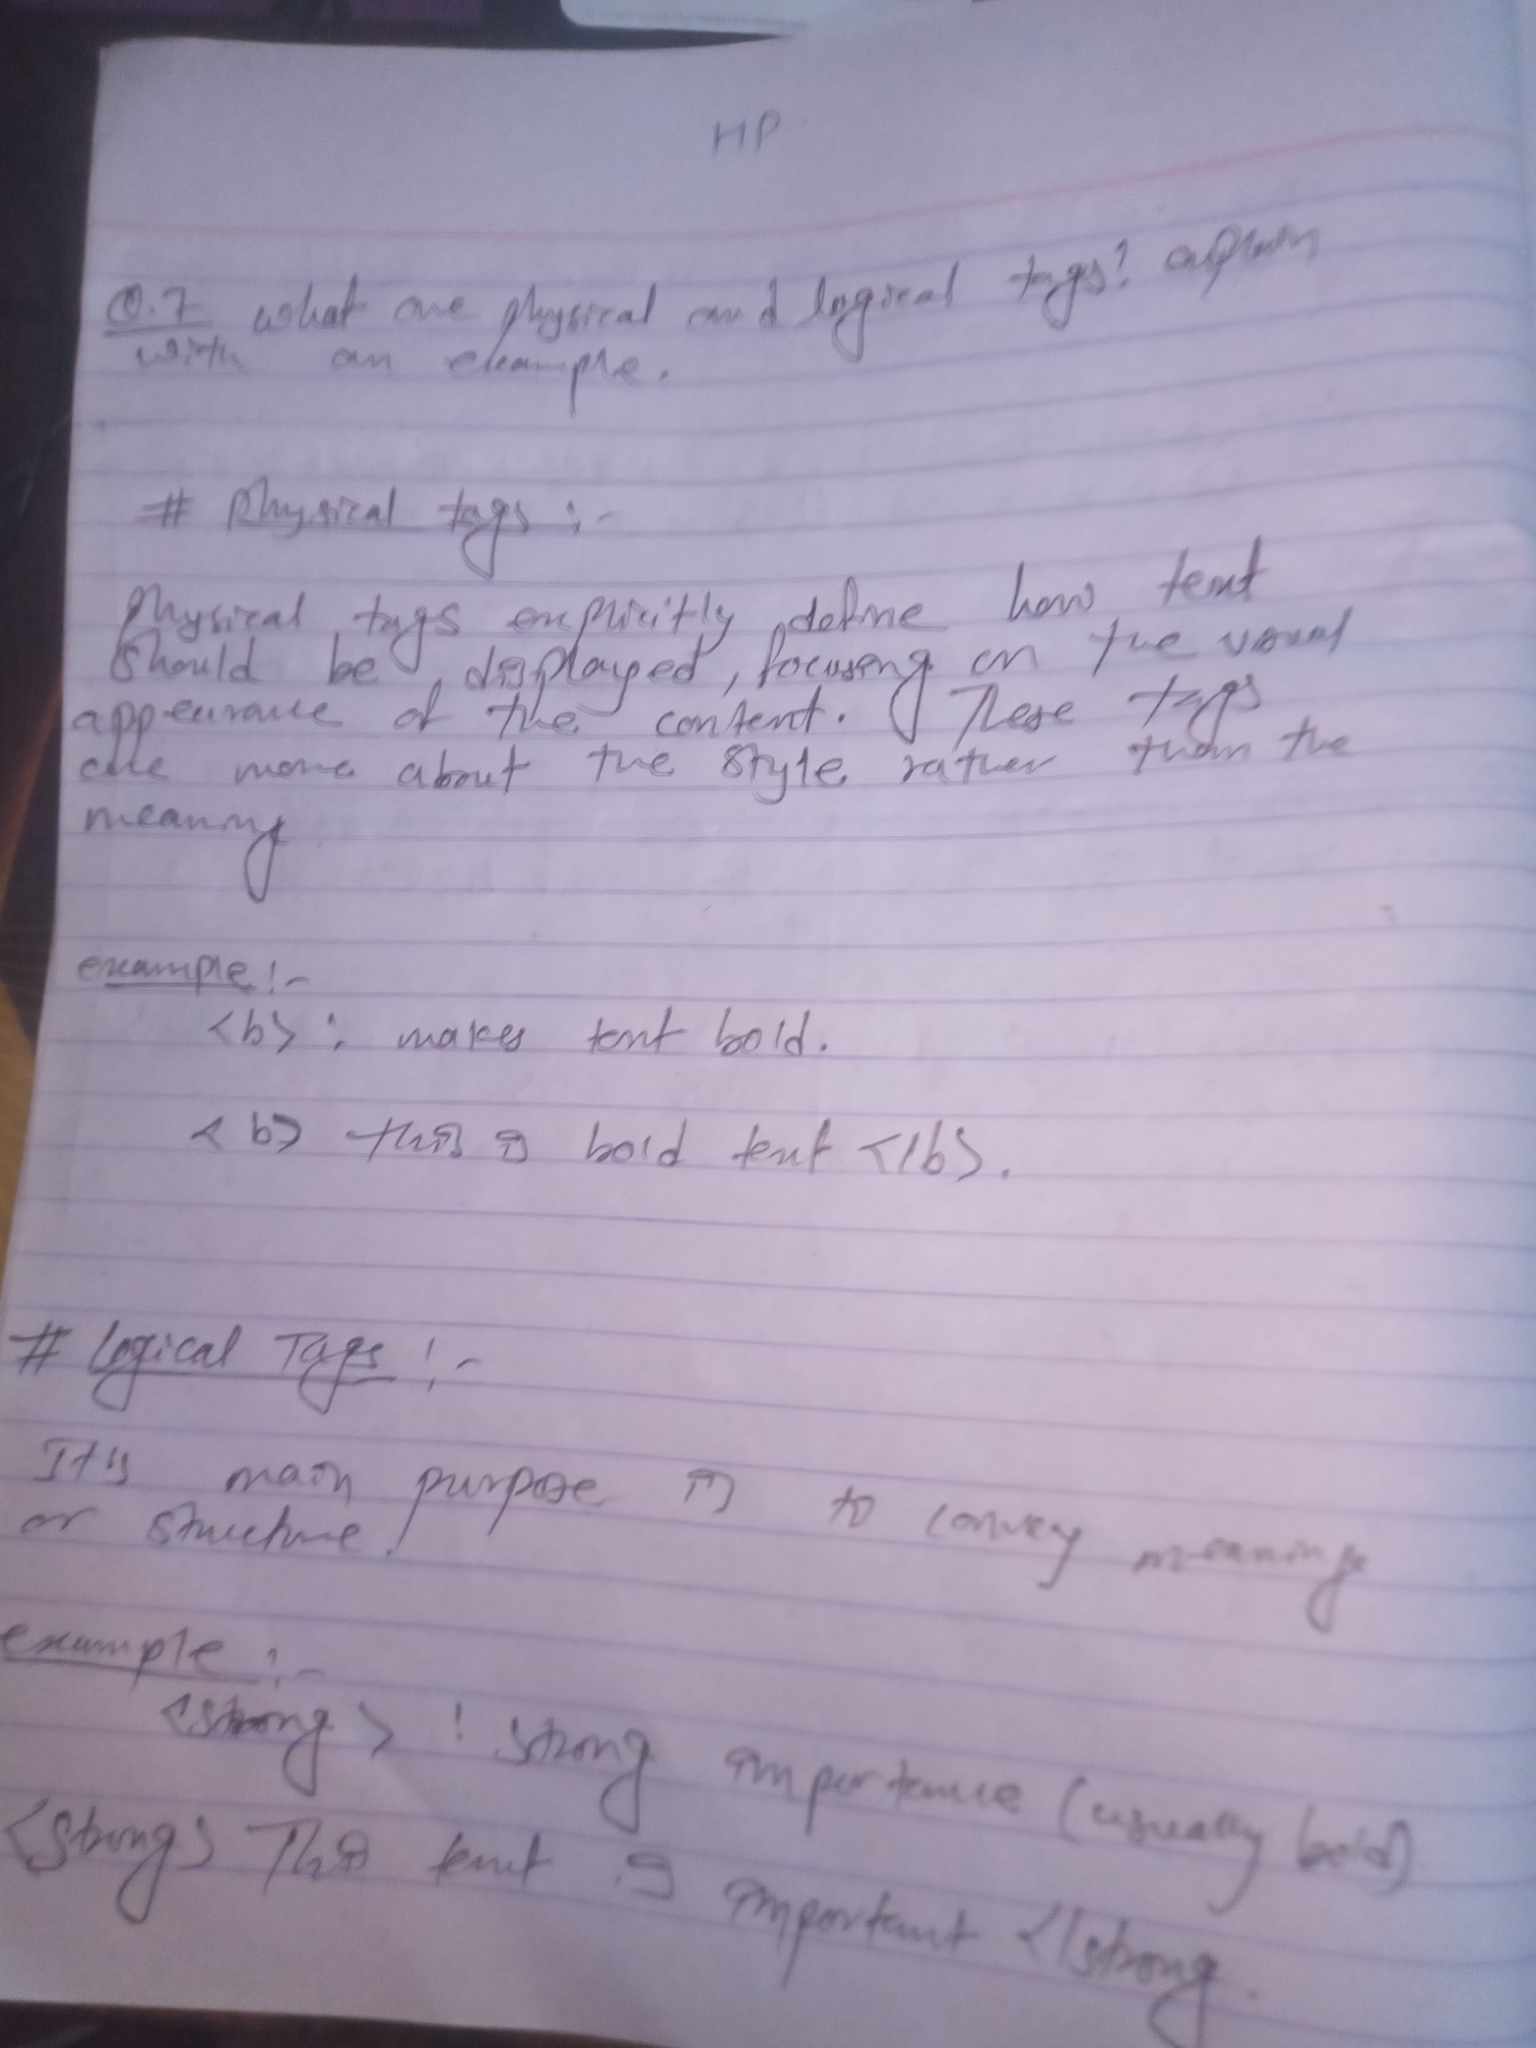 HP
Q.7 what are physical and logical tags? explain
with an example.
# Physical tags :-
Physical tags explicitly define how text
should be displayed, focusing on the visual
appearance of the content. These tags
are more about the style rather than the
meaning
example :-
<b> : makes text bold.
<b> this is bold text </b>.
# Logical Tags :-
It's main purpose is to convey meaning
or structure.
example :-
<strong> : strong importance (usually bold)
<strong> This text is important </strong.